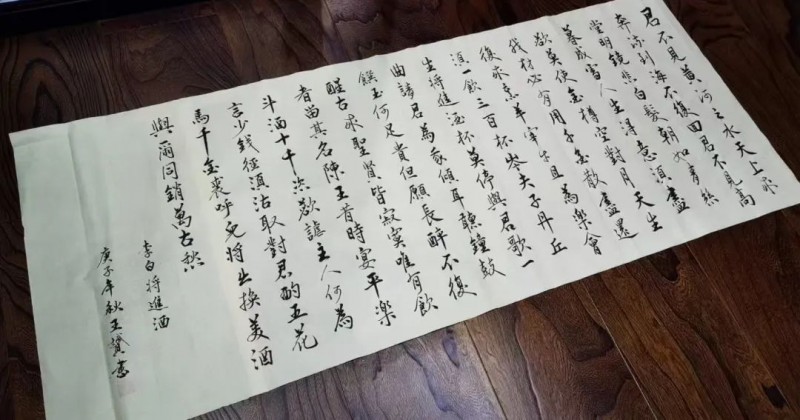 君不見黃河之水天上來
奔流到海不復回君不見高
堂明鏡悲白髮朝如青絲
暮成雪人生得意須盡
歡莫使金樽空對月天生
我材必有用千金散盡還
復來烹羊宰牛且為樂會
須一飲三百杯岑夫子丹丘
生將進酒杯莫停與君歌一
曲請君為我傾耳聽鐘鼓
饌玉何足貴但願長醉不復
醒古來聖賢皆寂寞唯有飲
者留其名陳王昔時宴平樂
斗酒十千恣歡謔主人何為
言少錢徑須沽取對君酌五花
馬千金裘呼兒將出換美酒
與爾同銷萬古愁
李白將進酒
庚子年秋王贇書